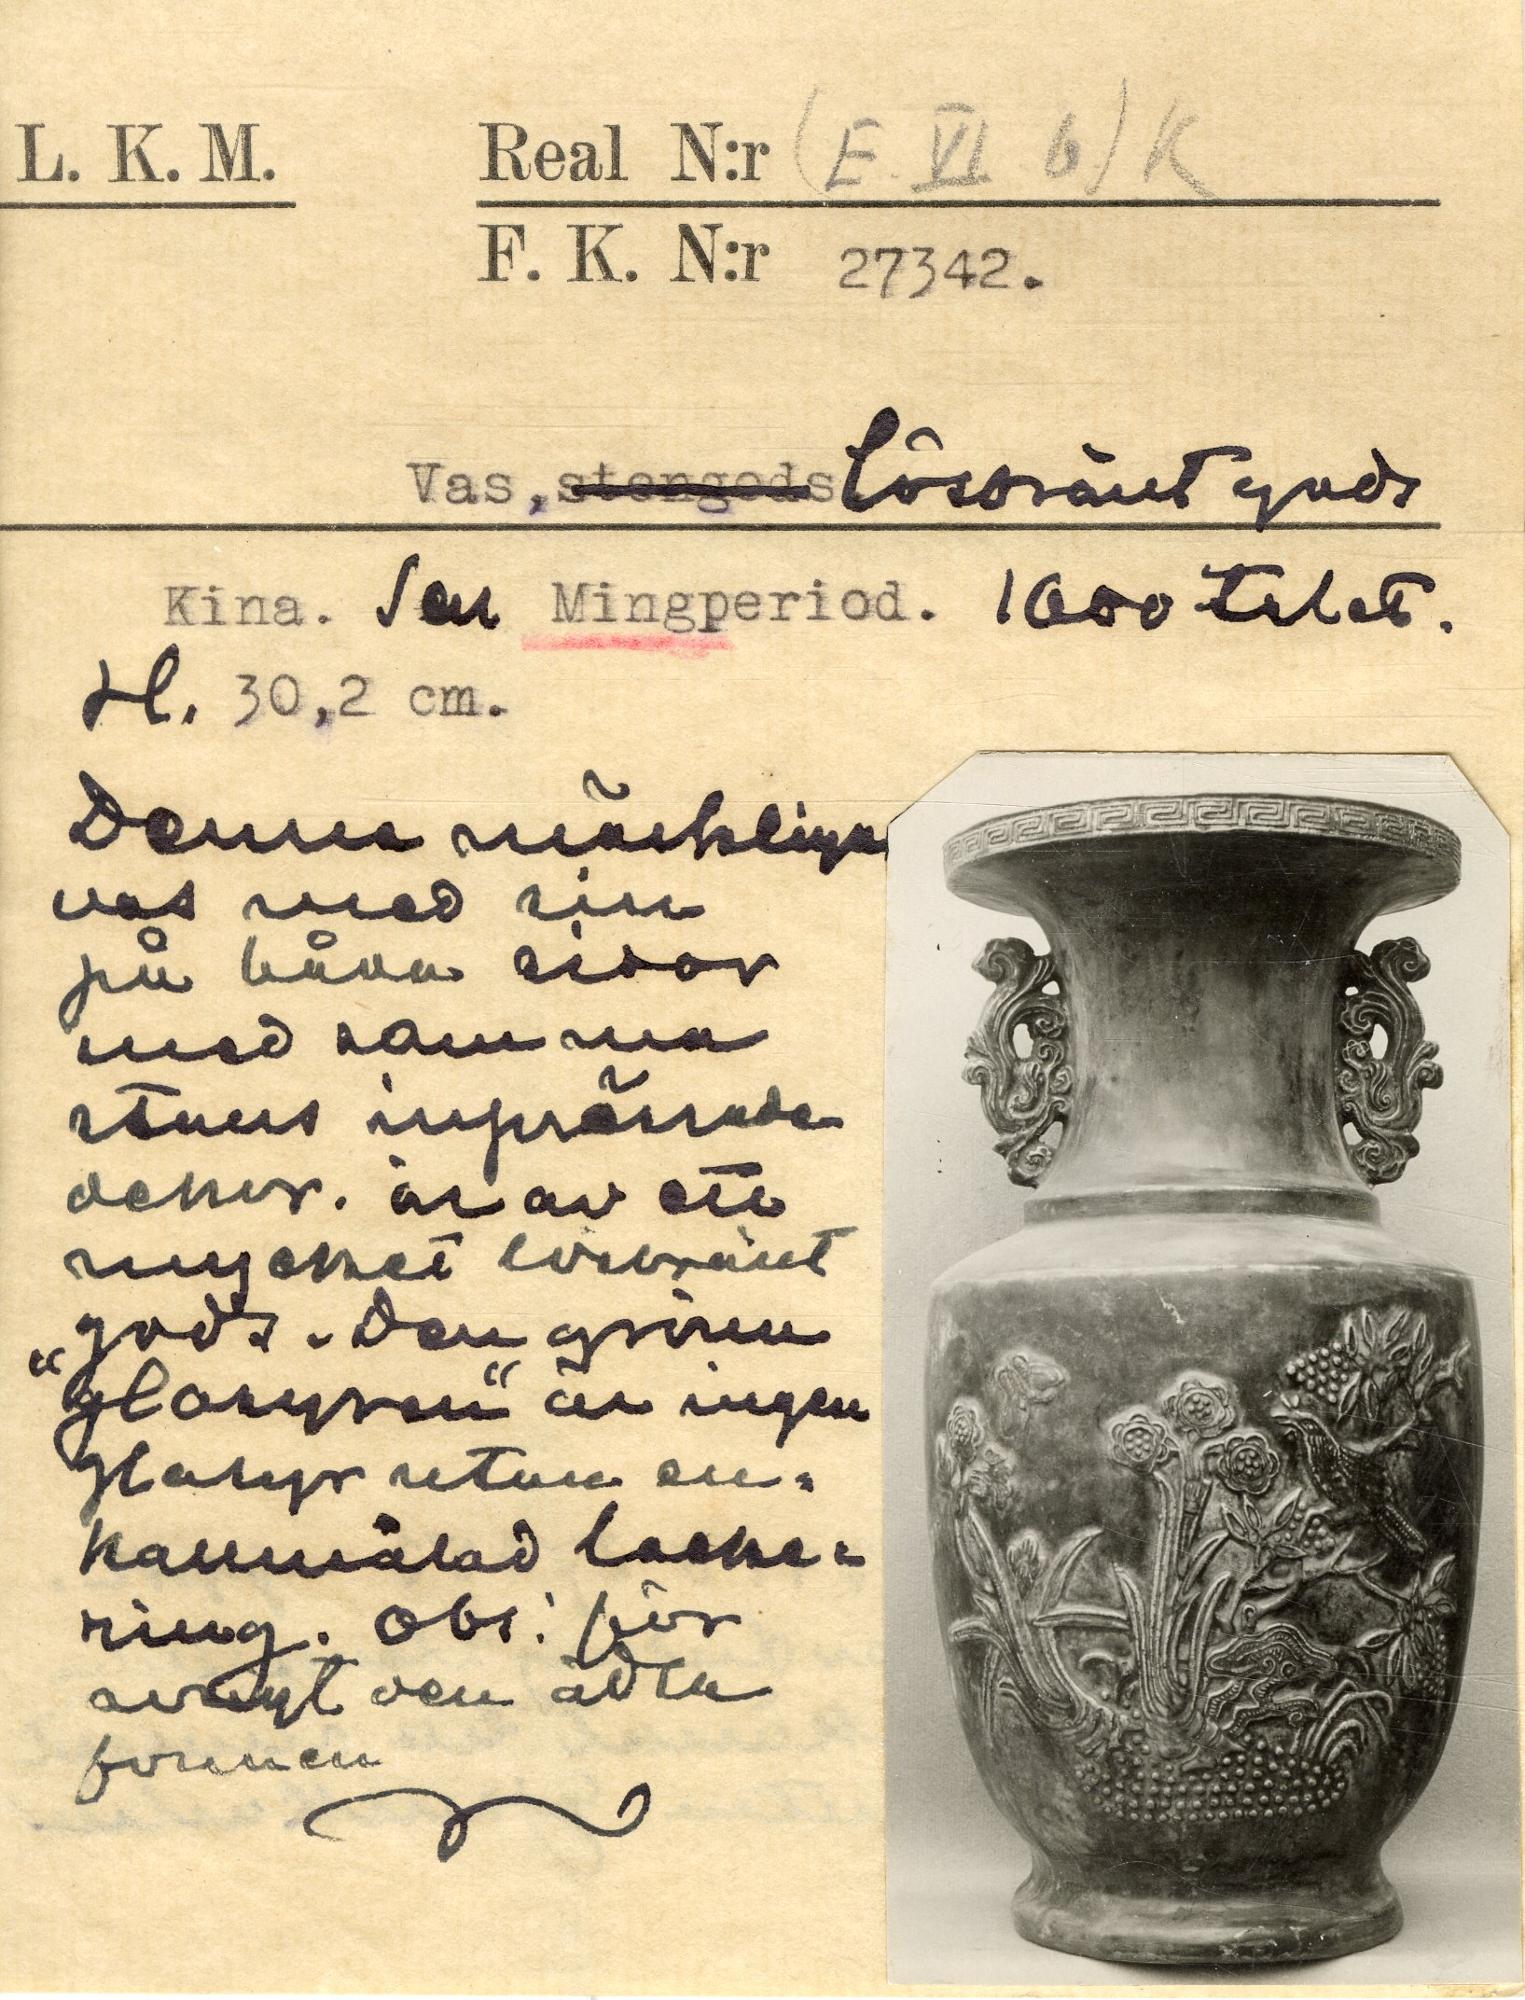 L. K. M. Real N:r (E. VI b) K
F. K. N:r 27342.
Vas, stengods Lösbränt gods
Kina. Sen Mingperiod. 1600 talet.
H. 30,2 cm.
Denna märkliga
vas med sin
på båda sidor
med samma
stans inpressade
dekor. är av ett
mycket lösbränt
gods. - Den gröna
"glasyren" är ingen
glasyr utan en-
kallmålad lacke-
ring. Obs! för
övrigt den ädla
formen